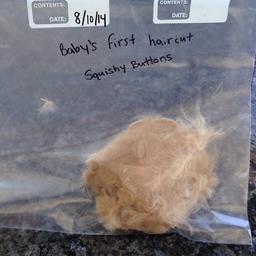 CONTENTS:
DATE: 8/10/14
CONTENTS:
DATE:
Baby's first haircut
Squishy Buttons